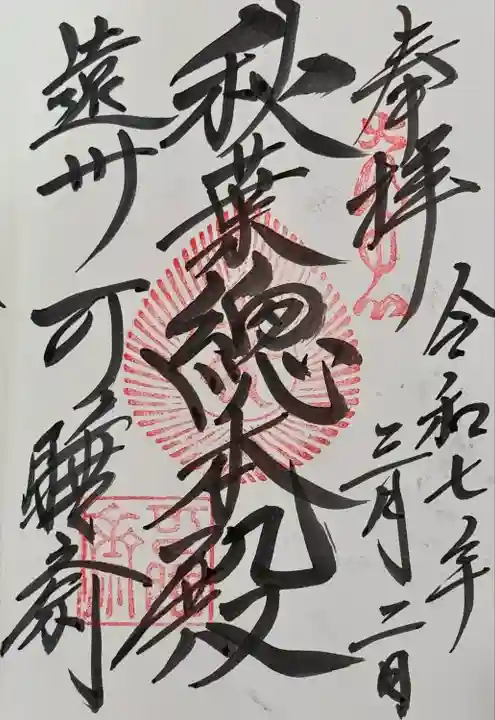 奉拝
令和七年
三月二日
秋葉總本殿
遠州可睡斎